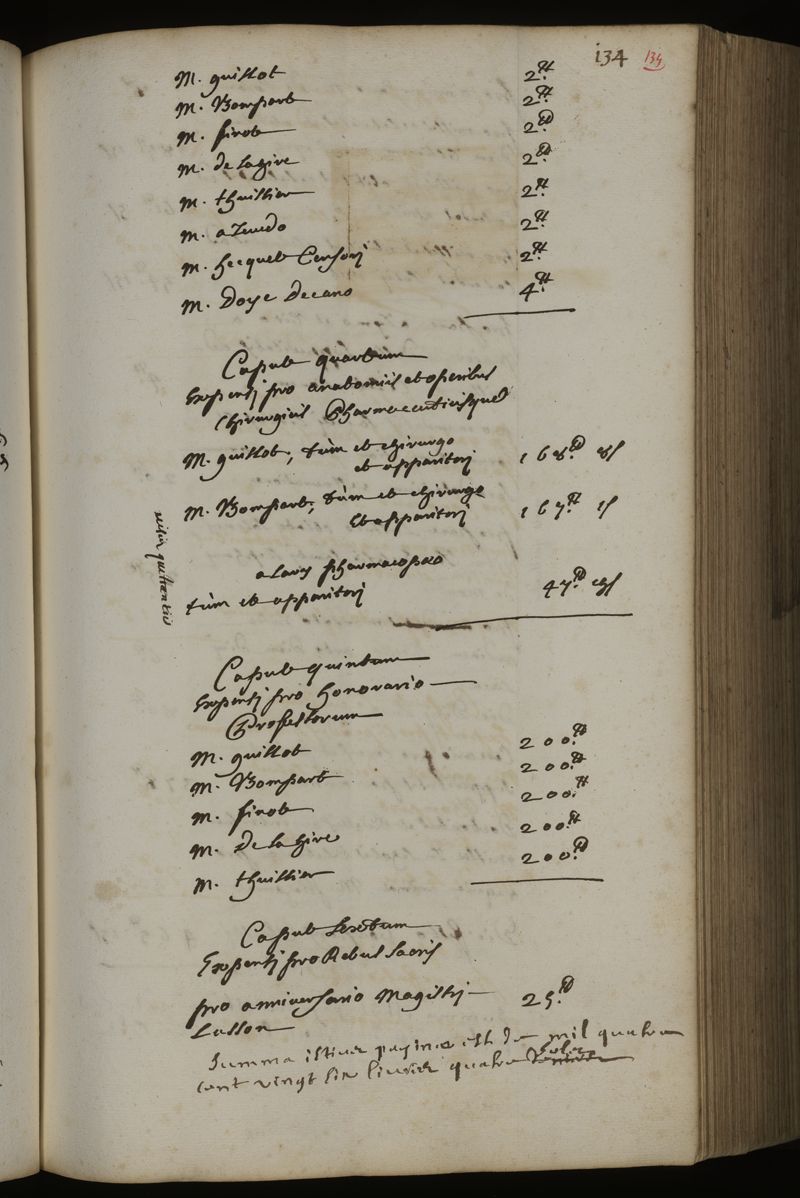 134 134
M. guillot 2.tt
M. Bompart 2.tt
M. finot 2.tt
M. de La hire 2.tt
M. thuillier 2.tt
M. azevedo 2.tt
M. hecquet Censorj 2.tt
M. Doye Decano 4.tt
Caput quartum
Expensj pro anatomiis et operibus
Chirurgicis Pharmaceuticisque
M. guillot, tùm et chirurgo
et apparitorj 168.tt 8s
M. Bompart, tùm et chirurgo
Et apparitorj 167.tt 1s
pharmacopæo
tùm et apparitorj 47.tt
Caput quintum
Expensj pro honorario
Professorum
M. guillot 200.tt
M. Bompart 200.tt
M. finot 200.tt
M. de La hire 200.tt
M. thuillier 200.tt
Caput sextum
Expensj pro Rebus sacris
pro anniversario Magistrj 25.tt
Lasson
Summa istius paginae est de mil quatre
cent vingt six livres quatre sols